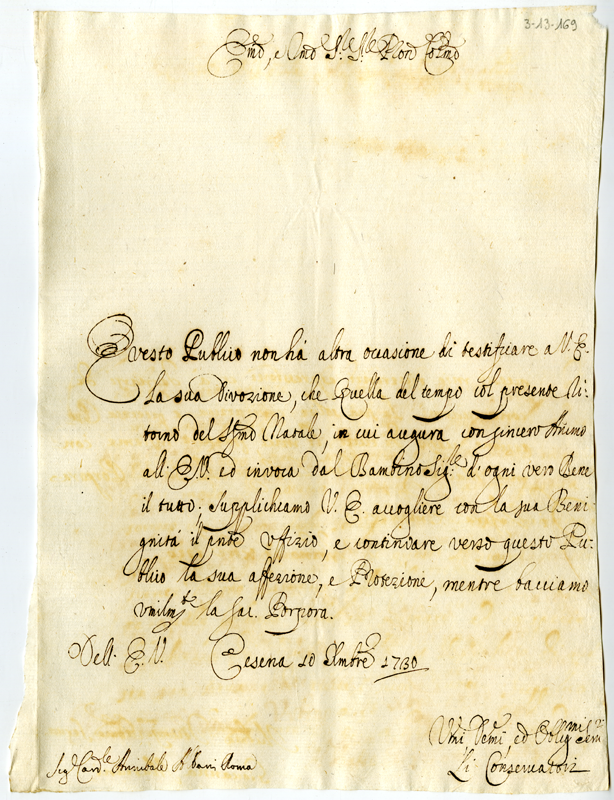 3-13-169
Emo, e Rmo Sr. Sr. Pron Colmo
Questo Publico non hà altra occasione di testificare a V. E.
la sua divozione, che quella del tempo col presente Ri-
torno del Ssmo Natale, in cui augura con sincero Animo
all' E. V. ed invoca dal Bambino Sigre d' ogni vero Bene
il tutto; Supplichiamo V. E. accogliere con la sua Beni
gnità il pnte Uffizio, e continuare verso questo Pu-
blico la sua affezione, e Protezione, mentre bacciamo
Vmilmte la Sac. Porpora.
Dell' E. V. Cesena 10 Xmbre 1730
Vmi, Demi, ed Obligmi Seri
Li Conservatori
Sigr Cardle Annibale Albani Roma